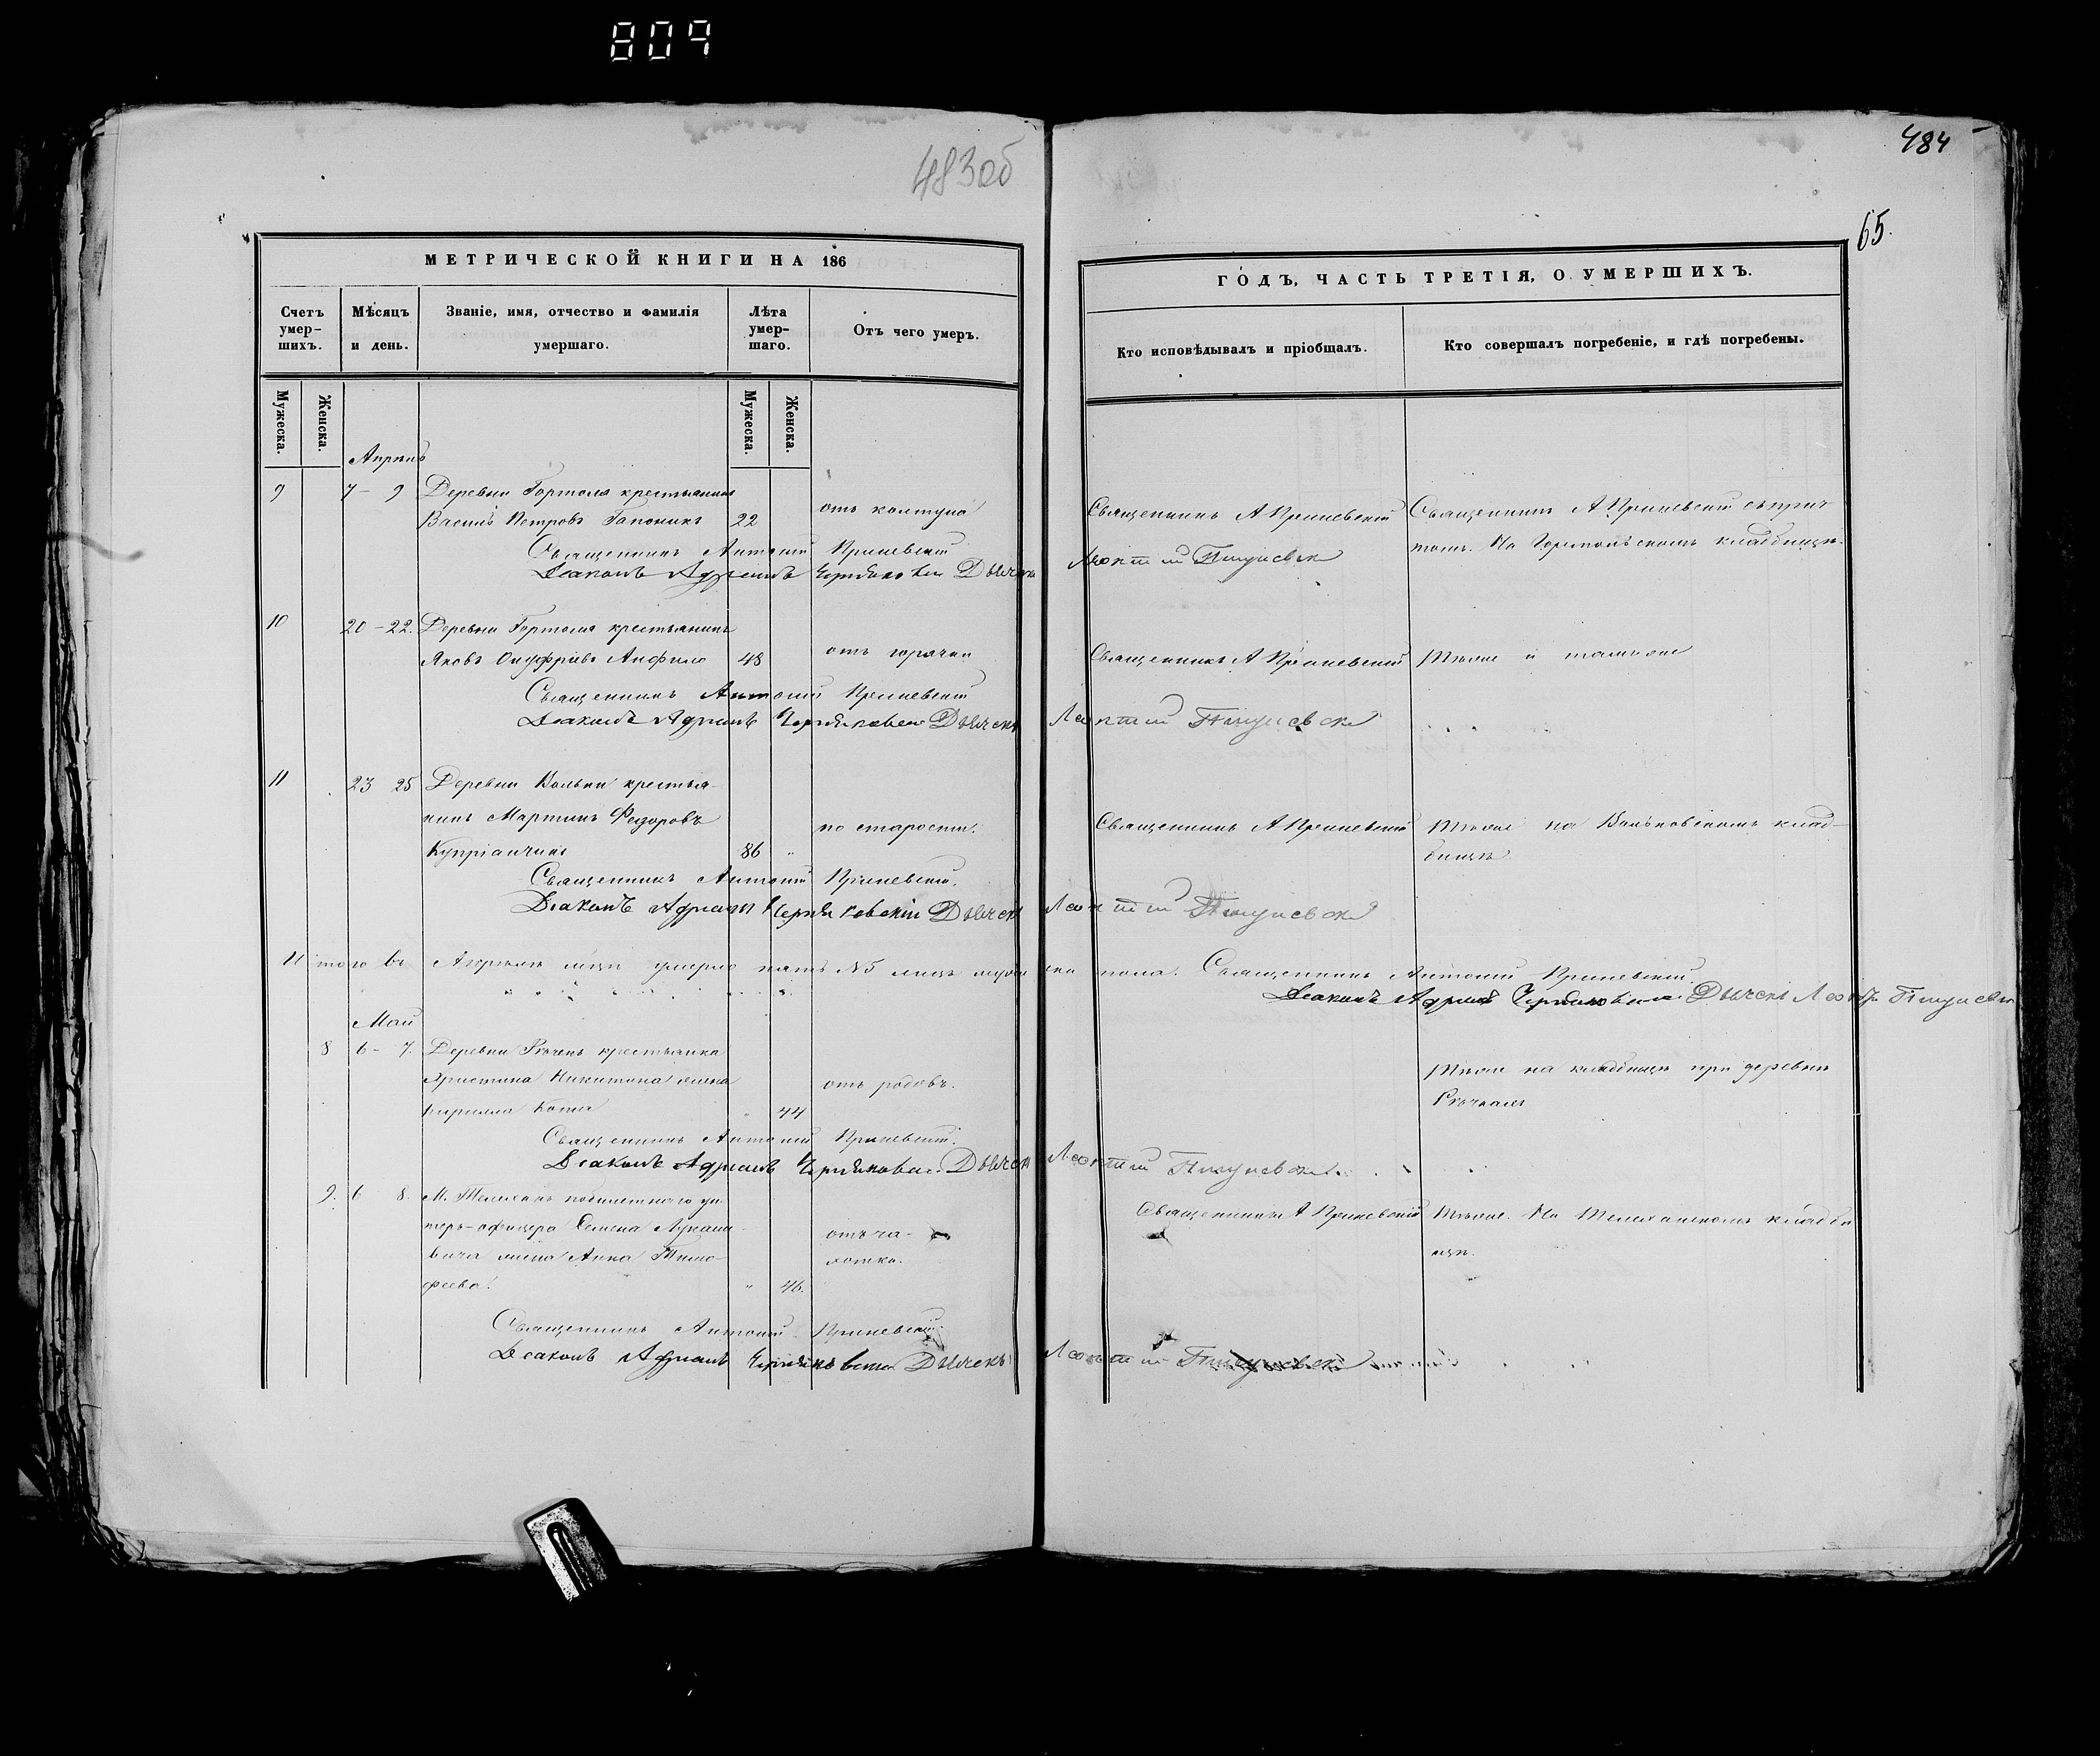 809
483об
484
65.
МЕТРИЧЕСКОЙ КНИГИ НА 186
ГОДЪ, ЧАСТЬ ТРЕТІЯ, О УМЕРШИХЪ.
Счетъ умер-шихъ.
Мѣсяцъ и день.
Званіе, имя, отчество и фамилія умершаго.
Лѣта умер-шаго.
Отъ чего умеръ.
Кто исповѣдывалъ и пріобщалъ.
Кто совершалъ погребеніе, и гдѣ погребены.
Мужеска.
Женска.
Мужеска.
Женска.
Апрѣль
9 7 - 9 Деревни Гортоля крестьянинъ
Василь Петровъ Гапоникъ 22
отъ колтуна
Священникъ А Криневскій
Священникъ А Криневскій съ прич
томъ. На Гортольскомъ кладбищѣ.
Священникъ Антоній Криневскій
Діаконъ Адріанъ Дьячекъ Леонтій
10 20 - 22. Деревни Гортоля крестьянинъ
Яковъ Онуфріевъ Анфило 48
отъ горячки
Священникъ А Криневскій
Тѣже и тамъже
Священникъ Антоній Криневскій
Діаконъ Адріанъ Дьячекъ Леонтій
11 23 25 Деревни Вольки крестья-
нинъ Мартинъ Федоровъ
Купріанчикъ 86 "
по старости.
Священникъ А Криневскій
Тѣже на Вольковскомъ клад-
бищѣ
Священникъ Антоній Криневскій.
Діаконъ Адріанъ Дьячекъ Леонтій
Итого въ Апрѣлѣ мцѣ умерло пять №5 лицъ мужеска пола. Священникъ Антоній Криневскій.
Діаконъ Адріанъ Дьячекъ
Май
8 6 - 7. Деревни Рѣчекъ крестьянка
Христина Никитина жена
Кирилла Кота " 44
отъ родовъ.
Тѣже на кладбищѣ при деревнѣ
Рѣчкахъ
Священникъ Антоній Криневскій.
Діаконъ Адріанъ Дьячекъ Леонтій
9. 6 8. М. Телеханъ ун-
теръ-офицера Семена Лукаше
вича жена Анна Тимо-
феева. " 46.
отъ ча-
хотки.
Священникъ А Криневскій
Тѣже. На Телеханскомъ кладби
щѣ.
Священникъ Антоній Криневскій.
Діаконъ Адріанъ Дьячекъ Леонтій